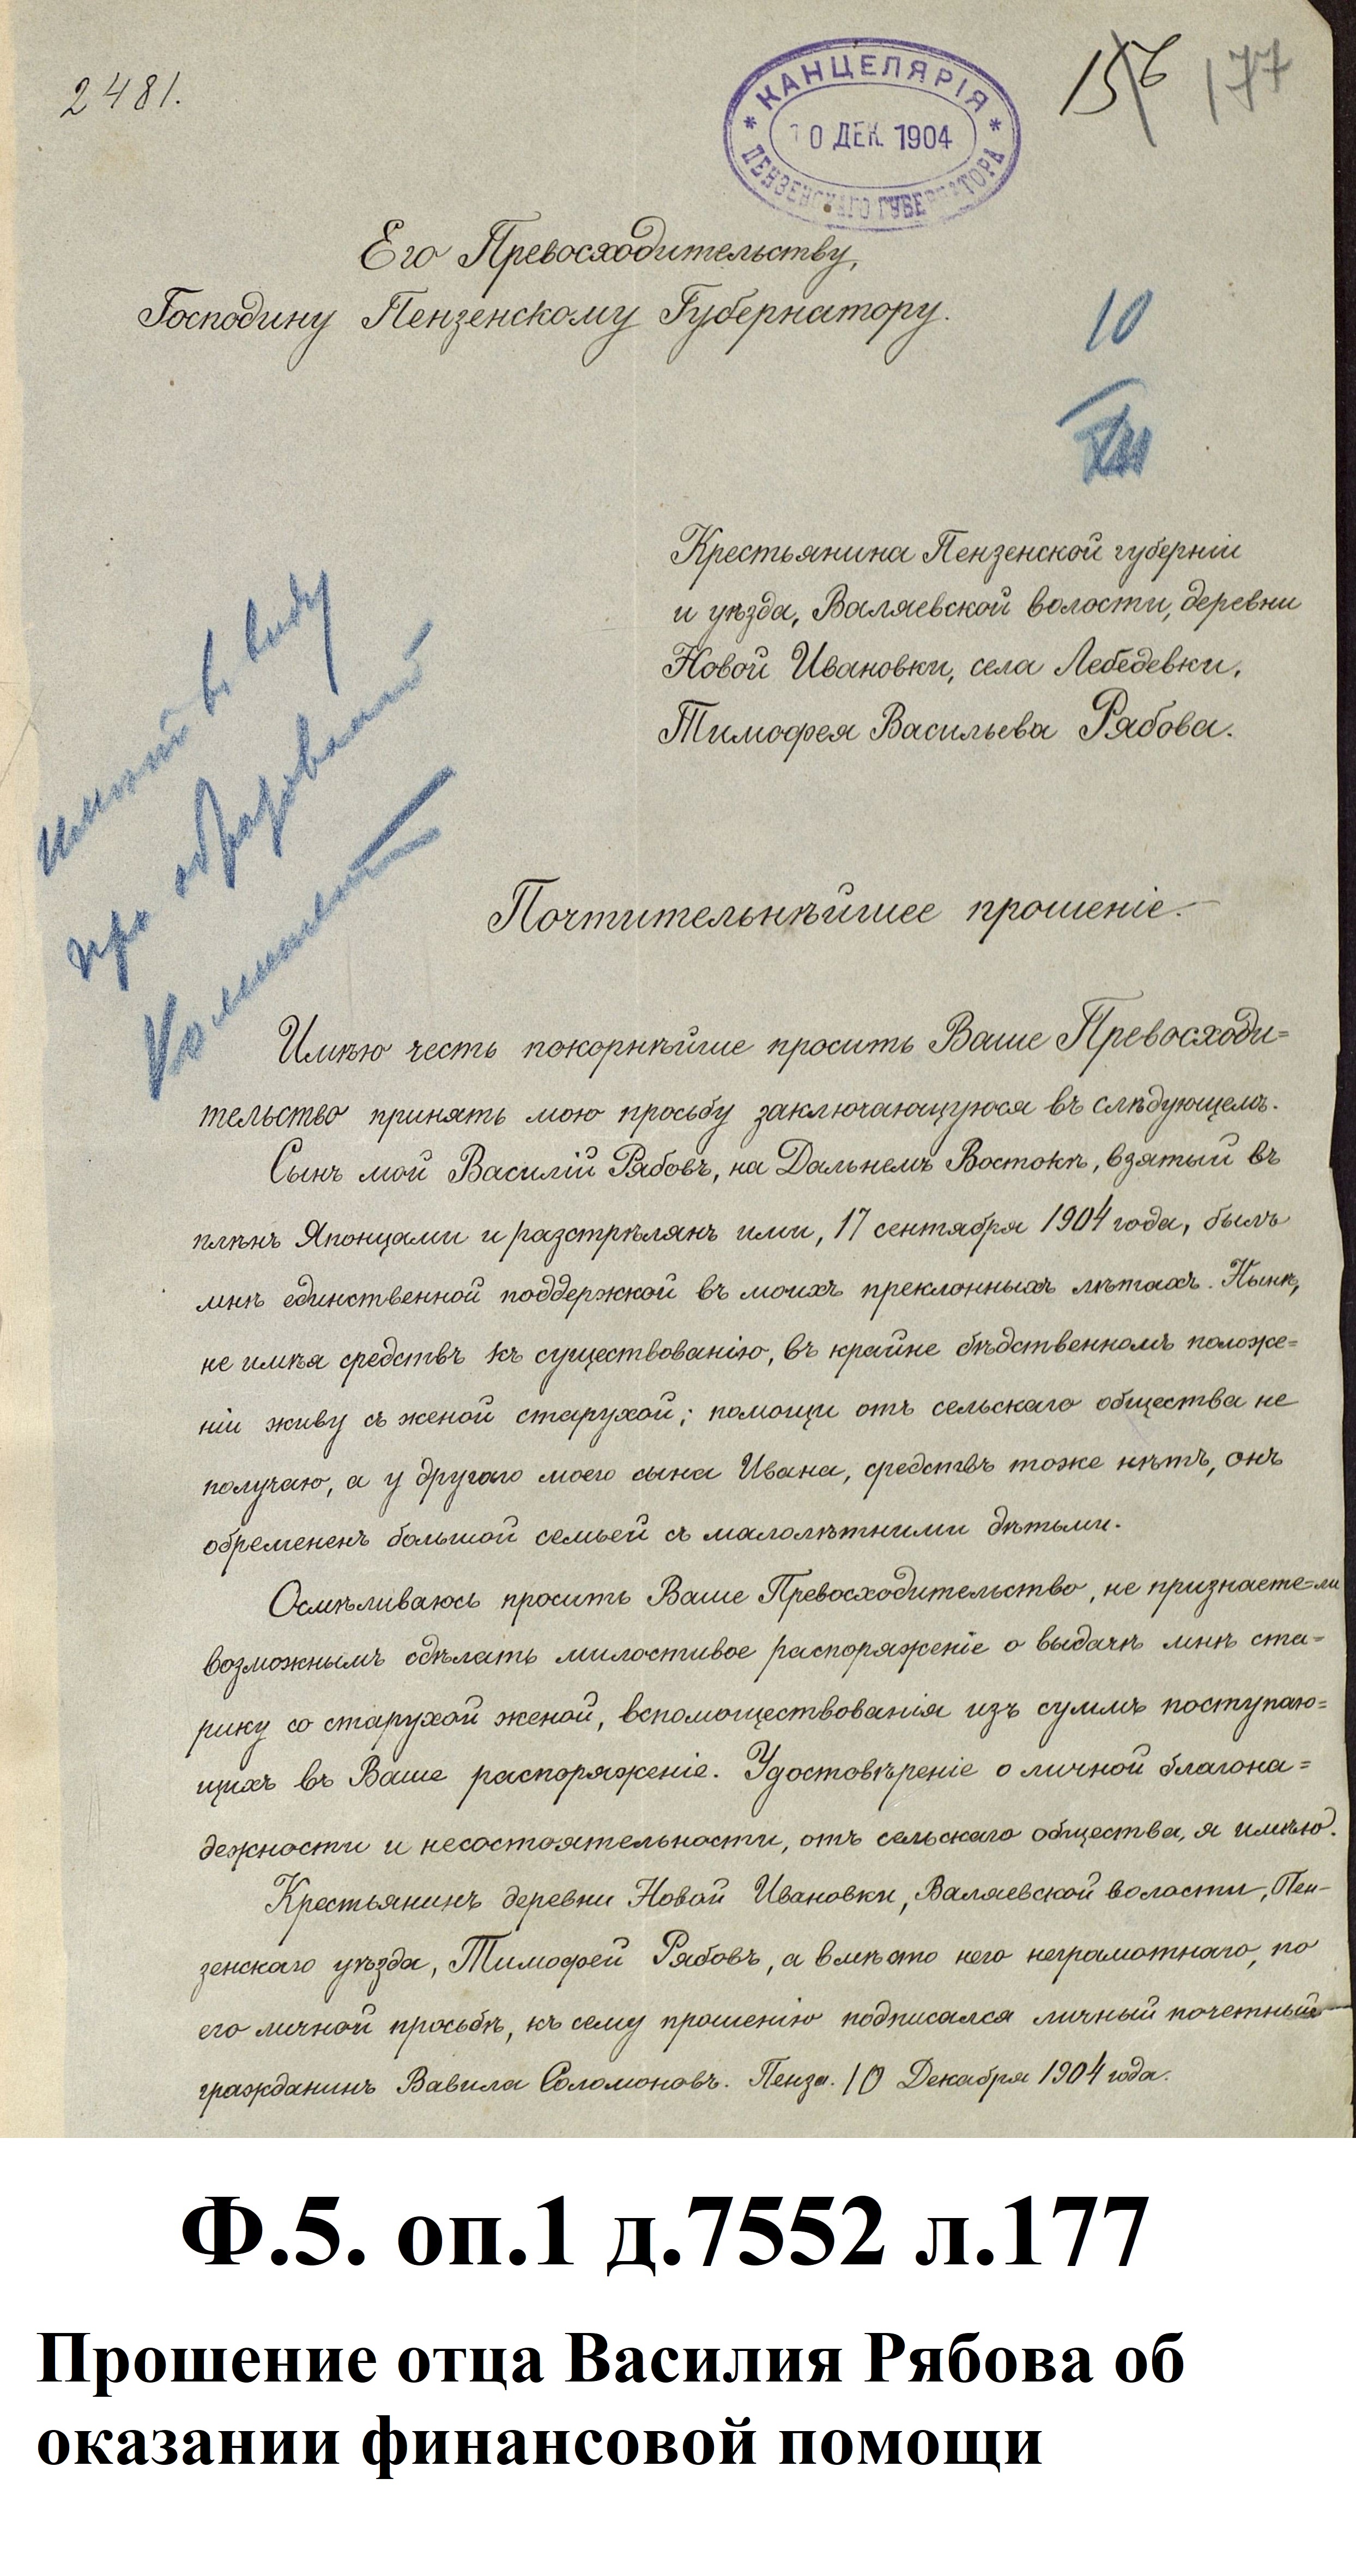 2481.
КАНЦЕЛЯРІЯ
10 ДЕК. 1904
ПЕНЗЕНСКАГО ГУБЕРНАТОРА
156 177
Его Превосходительству,
Господину Пензенскому Губернатору.
10
XII
Крестьянина Пензенской губерніи
и уѣзда, Валяевской волости, деревни
Новой Ивановки, села Лебедевки,
Тимофея Васильева Рябова.
въ виду
Комитета
Почтительнѣйшее прошеніе.
Имѣю честь покорнѣйше просить Ваше Превосходи=
тельство принять мою просьбу заключающуюся въ слѣдующемъ.
Сынъ мой Василій Рябовъ, на Дальнемъ Востокѣ, взятый въ
плѣнъ Японцами и разстрѣлянъ ими, 17 сентября 1904 года, былъ
мнѣ единственной поддержкой въ моихъ преклонныхъ лѣтахъ. Нынѣ,
не имѣя средствъ къ существованію, въ крайне бѣдственномъ положе=
ніи живу съ женой старухой; помощи отъ сельскаго общества не
получаю, а у другого моего сына Ивана, средствъ тоже нѣтъ, онъ
обремененъ большой семьей съ малолѣтними дѣтьми.
Осмѣливаюсь просить Ваше Превосходительство, не признаете=ли
возможнымъ сдѣлать милостивое распоряженіе о выдачѣ мнѣ ста=
рику со старухой женой, вспомоществованія изъ суммъ поступаю=
щихъ въ Ваше распоряженіе. Удостовѣреніе о личной благона=
дежности и несостоятельности, отъ сельскаго общества, я имѣю.
Крестьянинъ деревни Новой Ивановки, Валяевской волости, Пен-
зенскаго уѣзда, Тимофей Рябовъ, а вмѣсто него неграмотнаго, по
его личной просьбѣ, къ сему прошенію подписался личный почетный
гражданинъ Вавила Соломоновъ. Пенза. 10 Декабря 1904 года.
Ф.5. оп.1 д.7552 л.177
Прошение отца Василия Рябова об
оказании финансовой помощи